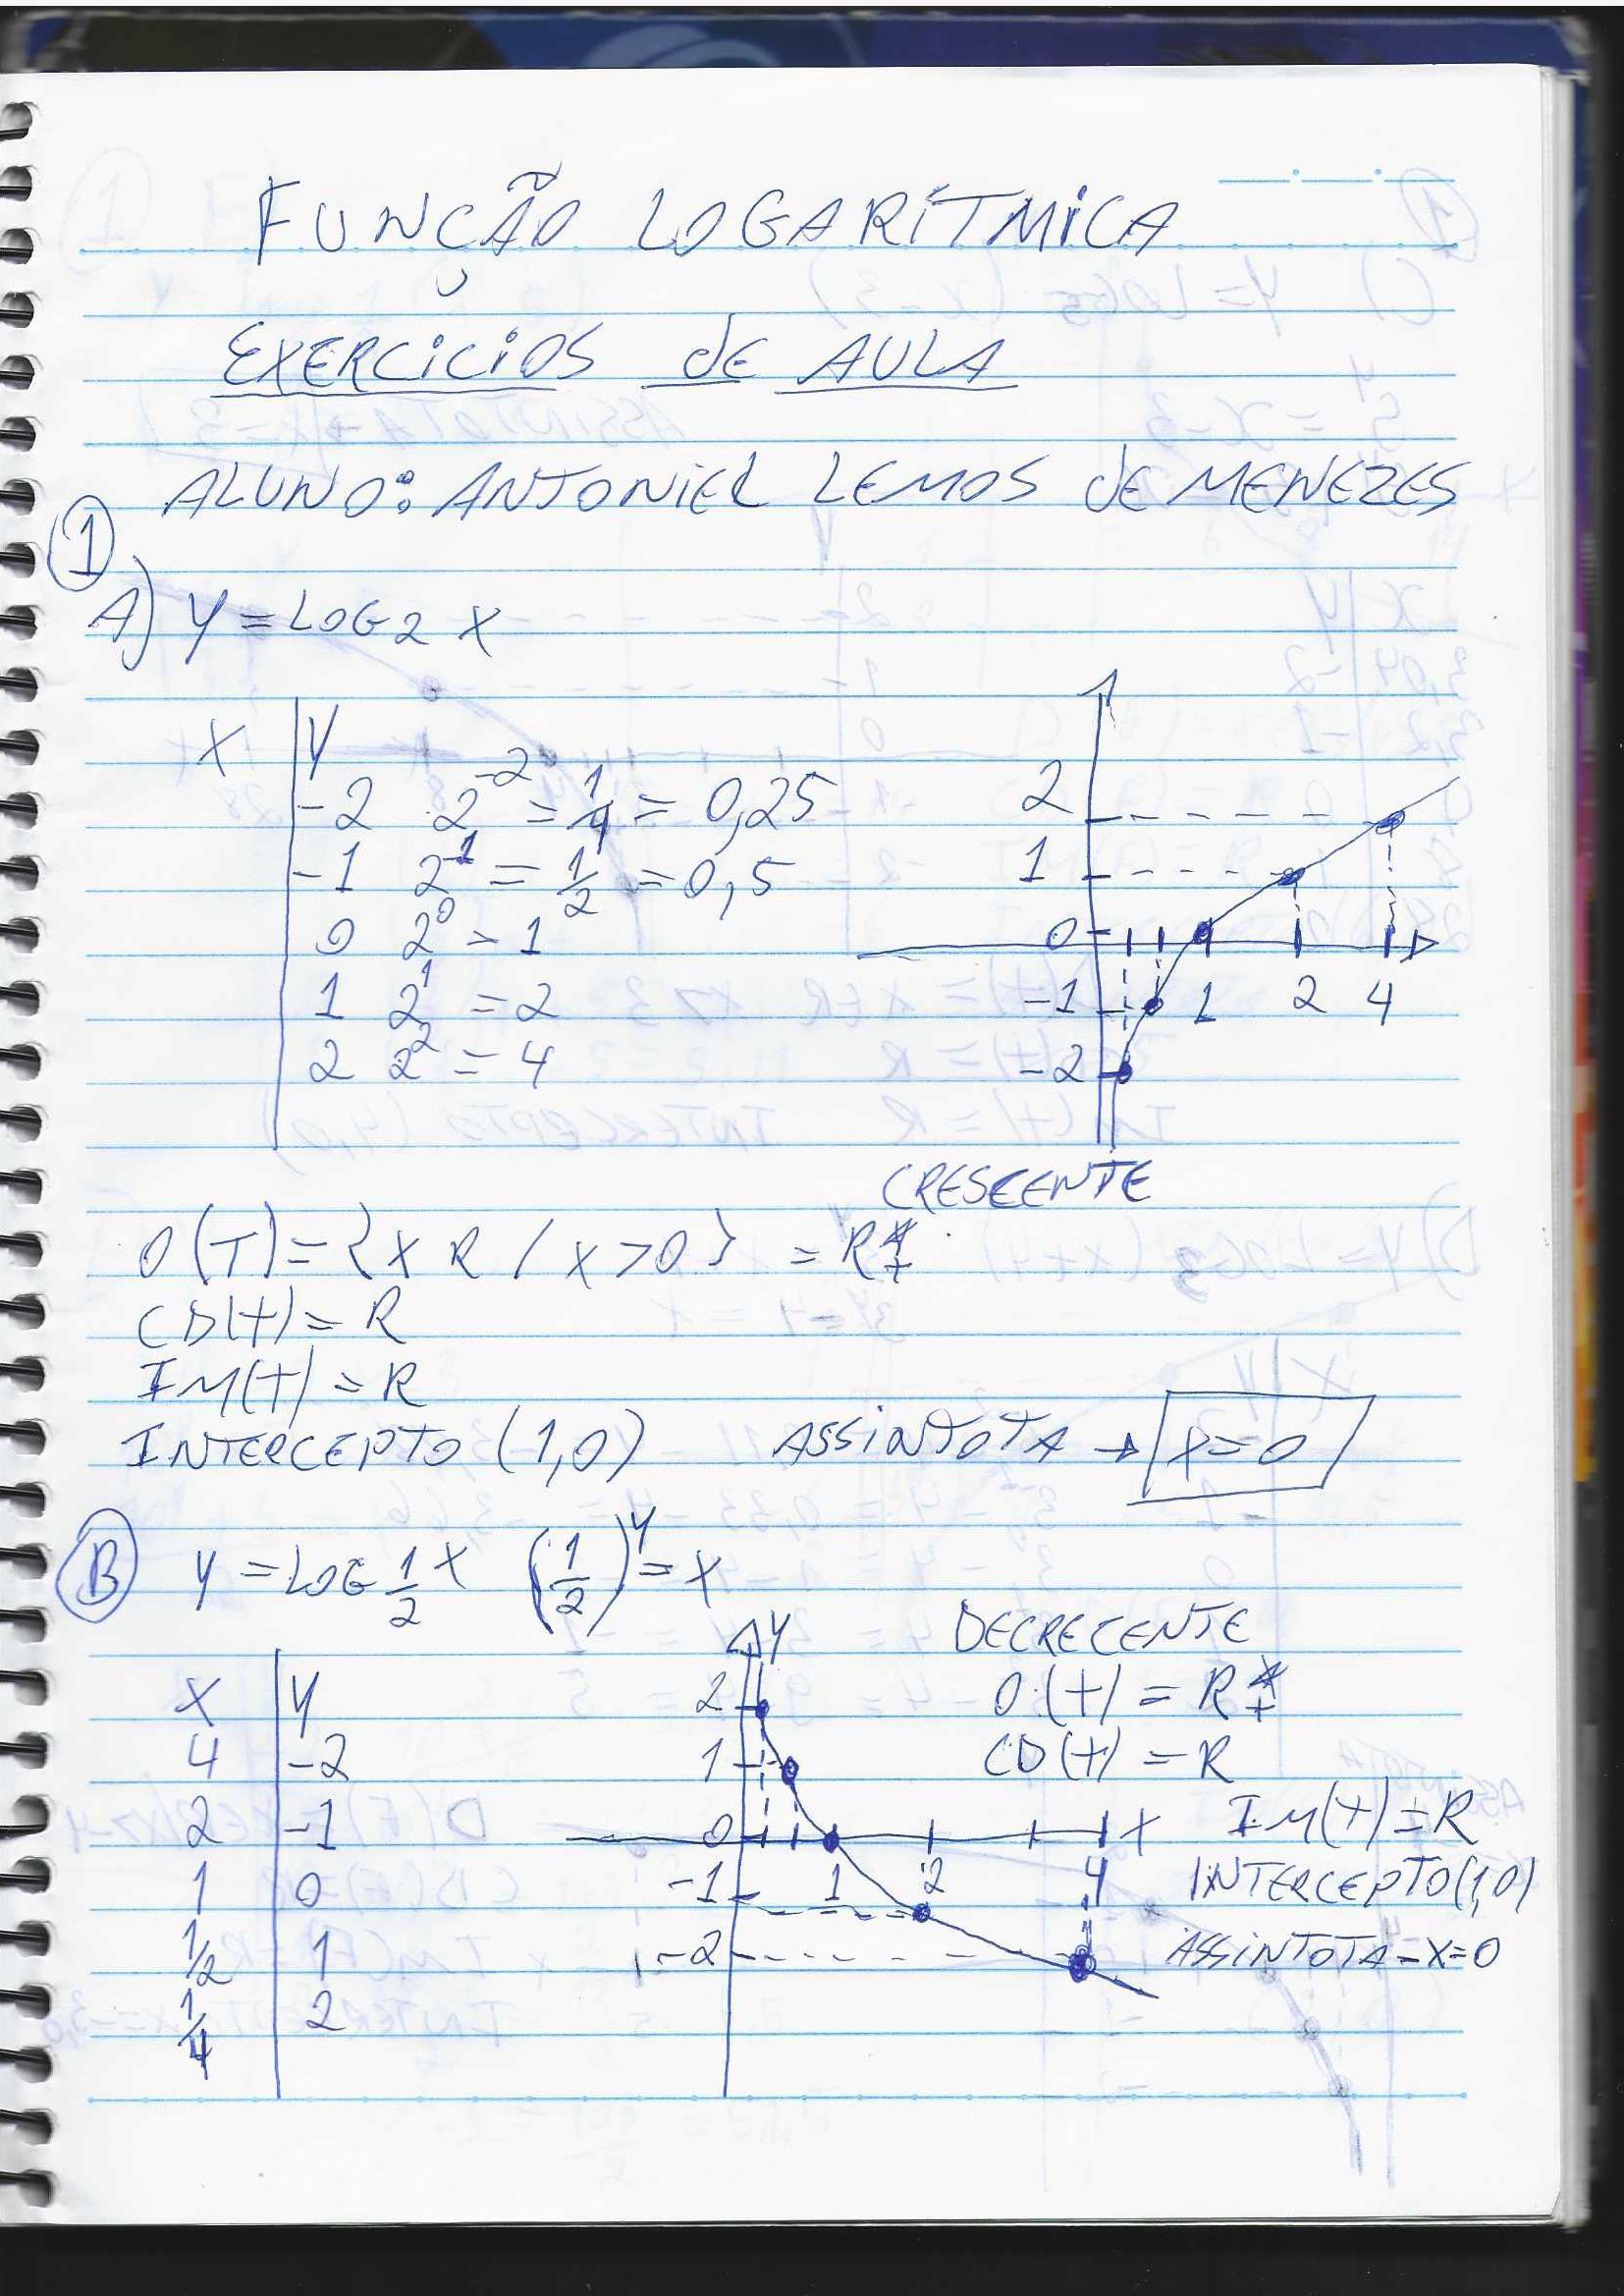 FUNÇÃO LOGARÍTMICA
EXERCICIOS dE AULA
ALUNO: ANTONIEL LEMOS dE MENEZES
1
A) Y = LOG2 X
X | Y
-2 2^-2 = 1/4 = 0,25
-1 2^-1 = 1/2 = 0,5
0 2^0 = 1
1 2^1 = 2
2 2^2 = 4
2
1
0
-1 1 2 4
-2
CRESCENTE
D(T) = {X R / X > 0} = R*+
CD(T) = R
IM(T) = R
INTERCEPTO (1,0) ASSINTOTA → X = 0
B Y = LOG 1/2 X (1/2)^Y = X
X | Y
4 | -2
2 | -1
1 | 0
1/2 | 1
1/4 | 2
Y
2
1
0 X
-1 1 2 4
-2
DECRECENTE
D(T) = R*+
CD(T) = R
IM(T) = R
INTERCEPTO (1,0)
ASSINTOTA - X = 0